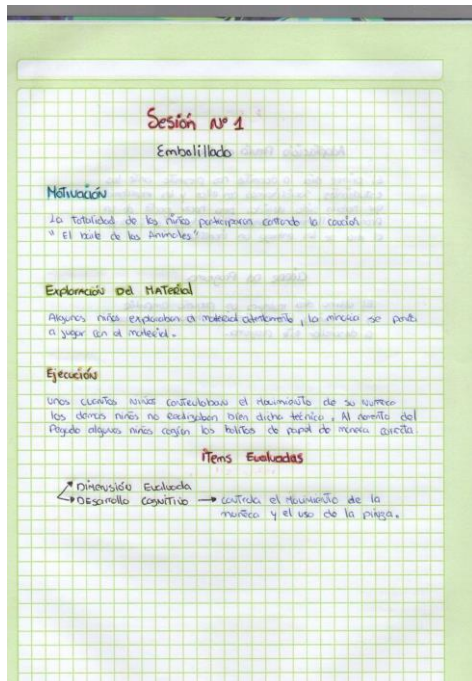 Sesión Nº 1
Embolillado
Motivación
La totalidad de los niños participaron cantando la canción
" El baile de los Animales."
Exploración Del Material
Algunos niños exploraban el material atentamente, la minoría se ponía
a jugar con el material.
Ejecución
Unos cuantos niños controlaban el movimiento de su muñeca
los demas niños no realizaban bien dicha técnica. Al momento del
Pegado algunos niños cogían las bolitas de papel de manera correcta
Ítems Evaluadas
Dimensión Evaluada
Desarrollo Cognitivo → controla el movimiento de la
muñeca y el uso de la pinza.